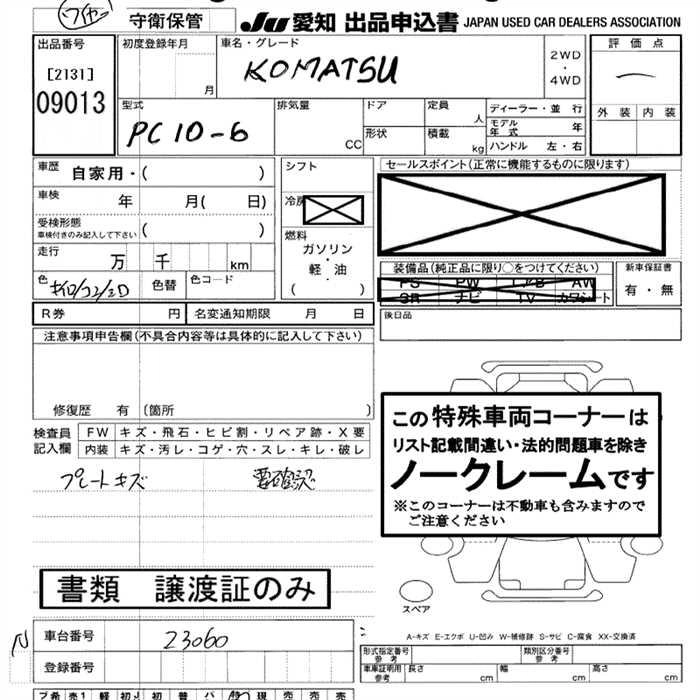 守衛保管 JU 愛知 出品申込書 JAPAN USED CAR DEALERS ASSOCIATION
出品番号
[2131]
09013
初度登録年月
月
車名・グレード
KOMATSU
2WD
・
4WD
評価点
外装 内装
型式
PC10-6
排気量
CC
ドア
形状
定員
人
積載
kg
ディーラー・並 行
モデル年式 年
ハンドル 左・右
車歴 自家用・( )
車検 年 月( 日)
受検形態
車検付きのみ記入して下さい ( )
走行 万 千 km
色
色替
色コード
シフト
冷房
燃料
ガソリン
・
軽・油
( )
セールスポイント(正常に機能するものに限ります)
装備品(純正品に限り○をつけてください)
PS PW エアB AW
SR ナビ TV カワシート
新車保証書
有・無
後日品
R券 円 名変通知期限 月 日
注意事項申告欄(不具合内容等は具体的に記入して下さい)
修復歴 有 (箇所 )
検査員記入欄
FW キズ・飛石・ヒビ割・リペア跡・X要
内装 キズ・汚レ・コゲ・穴・スレ・キレ・破レ
プレートキズ 要確認
この特殊車両コーナーは
リスト記載間違い・法的問題車を除き
ノークレームです
※このコーナーは不動車も含みますので
ご注意ください
スペア
書類 譲渡証のみ
A-キズ E-エクボ U-凹み W-補修跡 S-サビ C-腐食 XX-交換済
N 車台番号 23060
登録番号
形式指定番号
参考
類別区分番号
参考
車庫証明用
参考
長さ cm 幅 cm 高さ cm